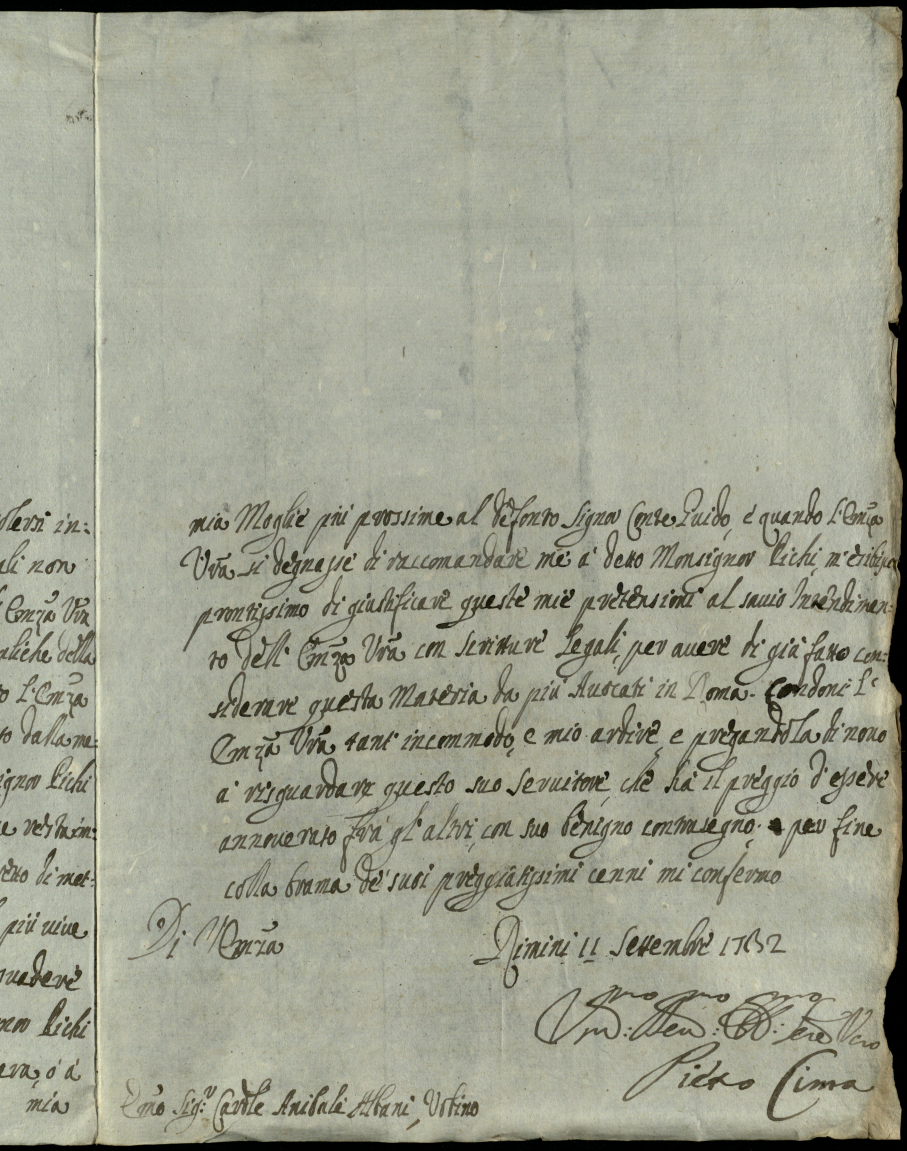 oleri in:
ali non
Emza Vra
aliche della
o L'Emza
to dalla ma:
ignor Pichi
a resta in:
di met:
più vive
suadere
nor Pichi
ara, ò à
mia
mia Moglie più prossime al defonto Signor Conte Guido, e quando L'Emza
Vra si degnasse di raccomandare me à detto Monsignor Pichi, m'esibisco
prontissimo di giustificare queste mie pretensioni al savio Intendimen:
to dell' Emza Vra con scritture Legali, per avere di già fatto con:
siderare questa Materia da più Avocati in Roma. Condoni L'
Emza Vra tant' incommodo, e mio ardire, e pregandola di novo
à risguardare questo suo Servitore, che hà il preggio d'essere
annoverato frà gl'altri, con suo benigno contrasegno. e per fine
colla brama de' suoi preggiatissimi cenni mi confermo
Di V Emza
Rimini 11 Settembre 1732
Vmo: Devmo: Obbmo: Sere Vero
Pietro Cima
Emo Sigr Cardle Anibale Albani, Urbino